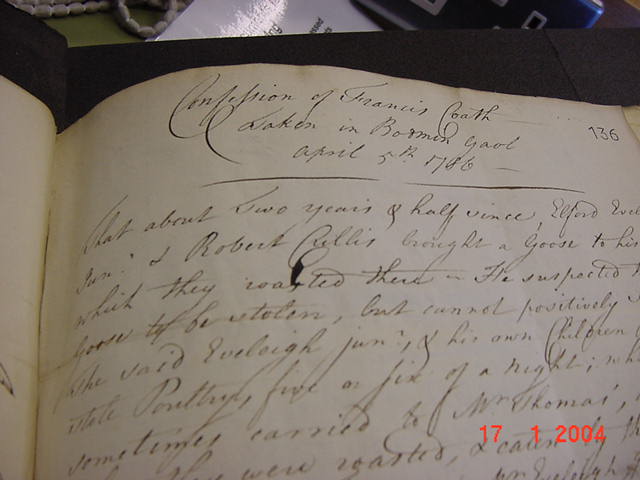 Confession of Francis Coath
Taken in Bodmin Gaol
April 5th 1786
136
That about Two years & half since, Elford Evel
Junr. & Robert Cullis brought a Goose to his
which they roasted there – He suspected t
Goose to be stolen, but cannot positively s
the said Eveleigh junr, & his own Children
stole Poultry, five or six of a night; wh
sometimes carried to Mr Thomas',
they were roasted, & eaten by th
Eveleigh
17 1 2004